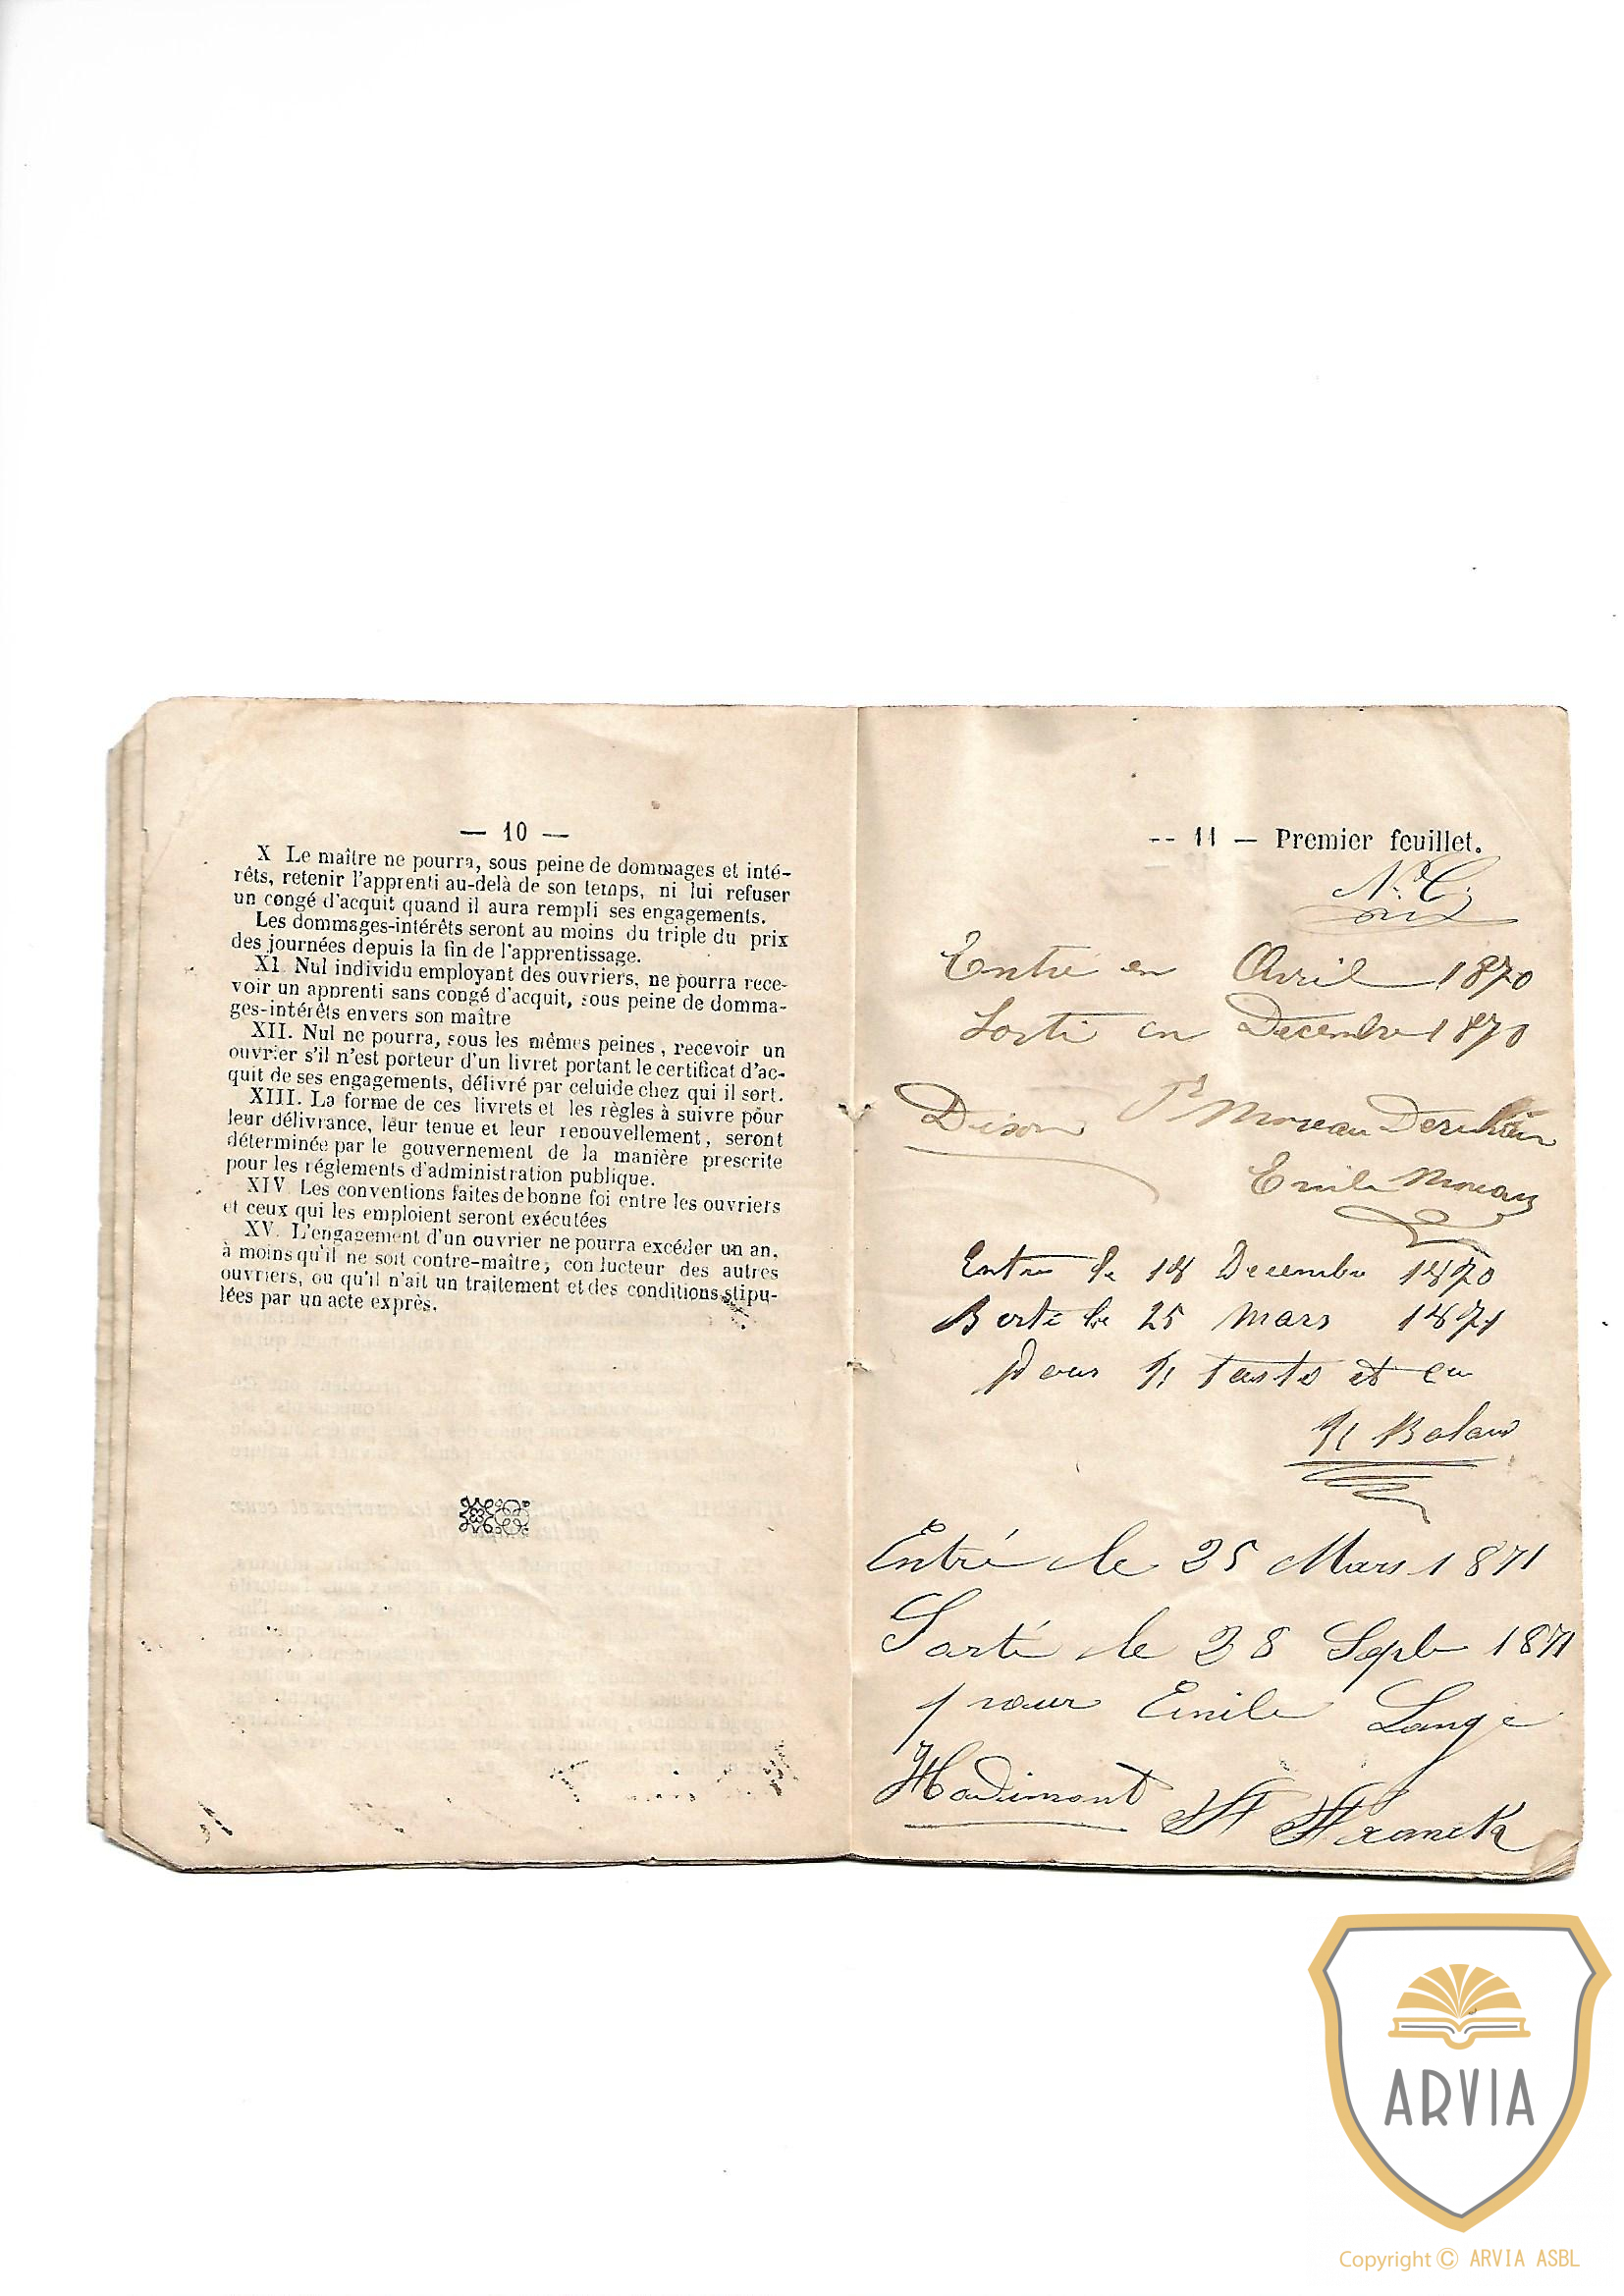 — 10 —
X Le maître ne pourra, sous peine de dommages et inté-
rêts, retenir l'apprenti au-delà de son temps, ni lui refuser
un congé d'acquit quand il aura rempli ses engagements.
Les dommages-intérêts seront au moins du triple du prix
des journées depuis la fin de l'apprentissage.
XI. Nul individu employant des ouvriers, ne pourra rece-
voir un apprenti sans congé d'acquit, sous peine de domma-
ges-intérêts envers son maître
XII. Nul ne pourra, sous les mêmes peines, recevoir un
ouvrier s'il n'est porteur d'un livret portant le certificat d'ac-
quit de ses engagements, délivré par celuide chez qui il sort.
XIII. La forme de ces livrets et les règles à suivre pour
leur délivrance, leur tenue et leur renouvellement, seront
déterminée par le gouvernement de la manière prescrite
pour les réglements d'administration publique.
XIV Les conventions faites de bonne foi entre les ouvriers
et ceux qui les emploient seront exécutées
XV. L'engagement d'un ouvrier ne pourra excéder un an,
à moins qu'il ne soit contre-maître, conducteur des autres
ouvriers, ou qu'il n'ait un traitement et des conditions stipu-
lées par un acte exprès.
-- 11 — Premier feuillet.
Entré en Avril 1870
Sorti en Decembre 1870
Dison Moreau
Emile Moreau
Entre le 18 Decembre 1870
Sorti le 25 Mars 1871
pour et
Entré le 25 Mars 1871
Sorti le 28 Septb 1871
pour Emile Lange
Hodimont Franck
ARVIA
Copyright © ARVIA ASBL